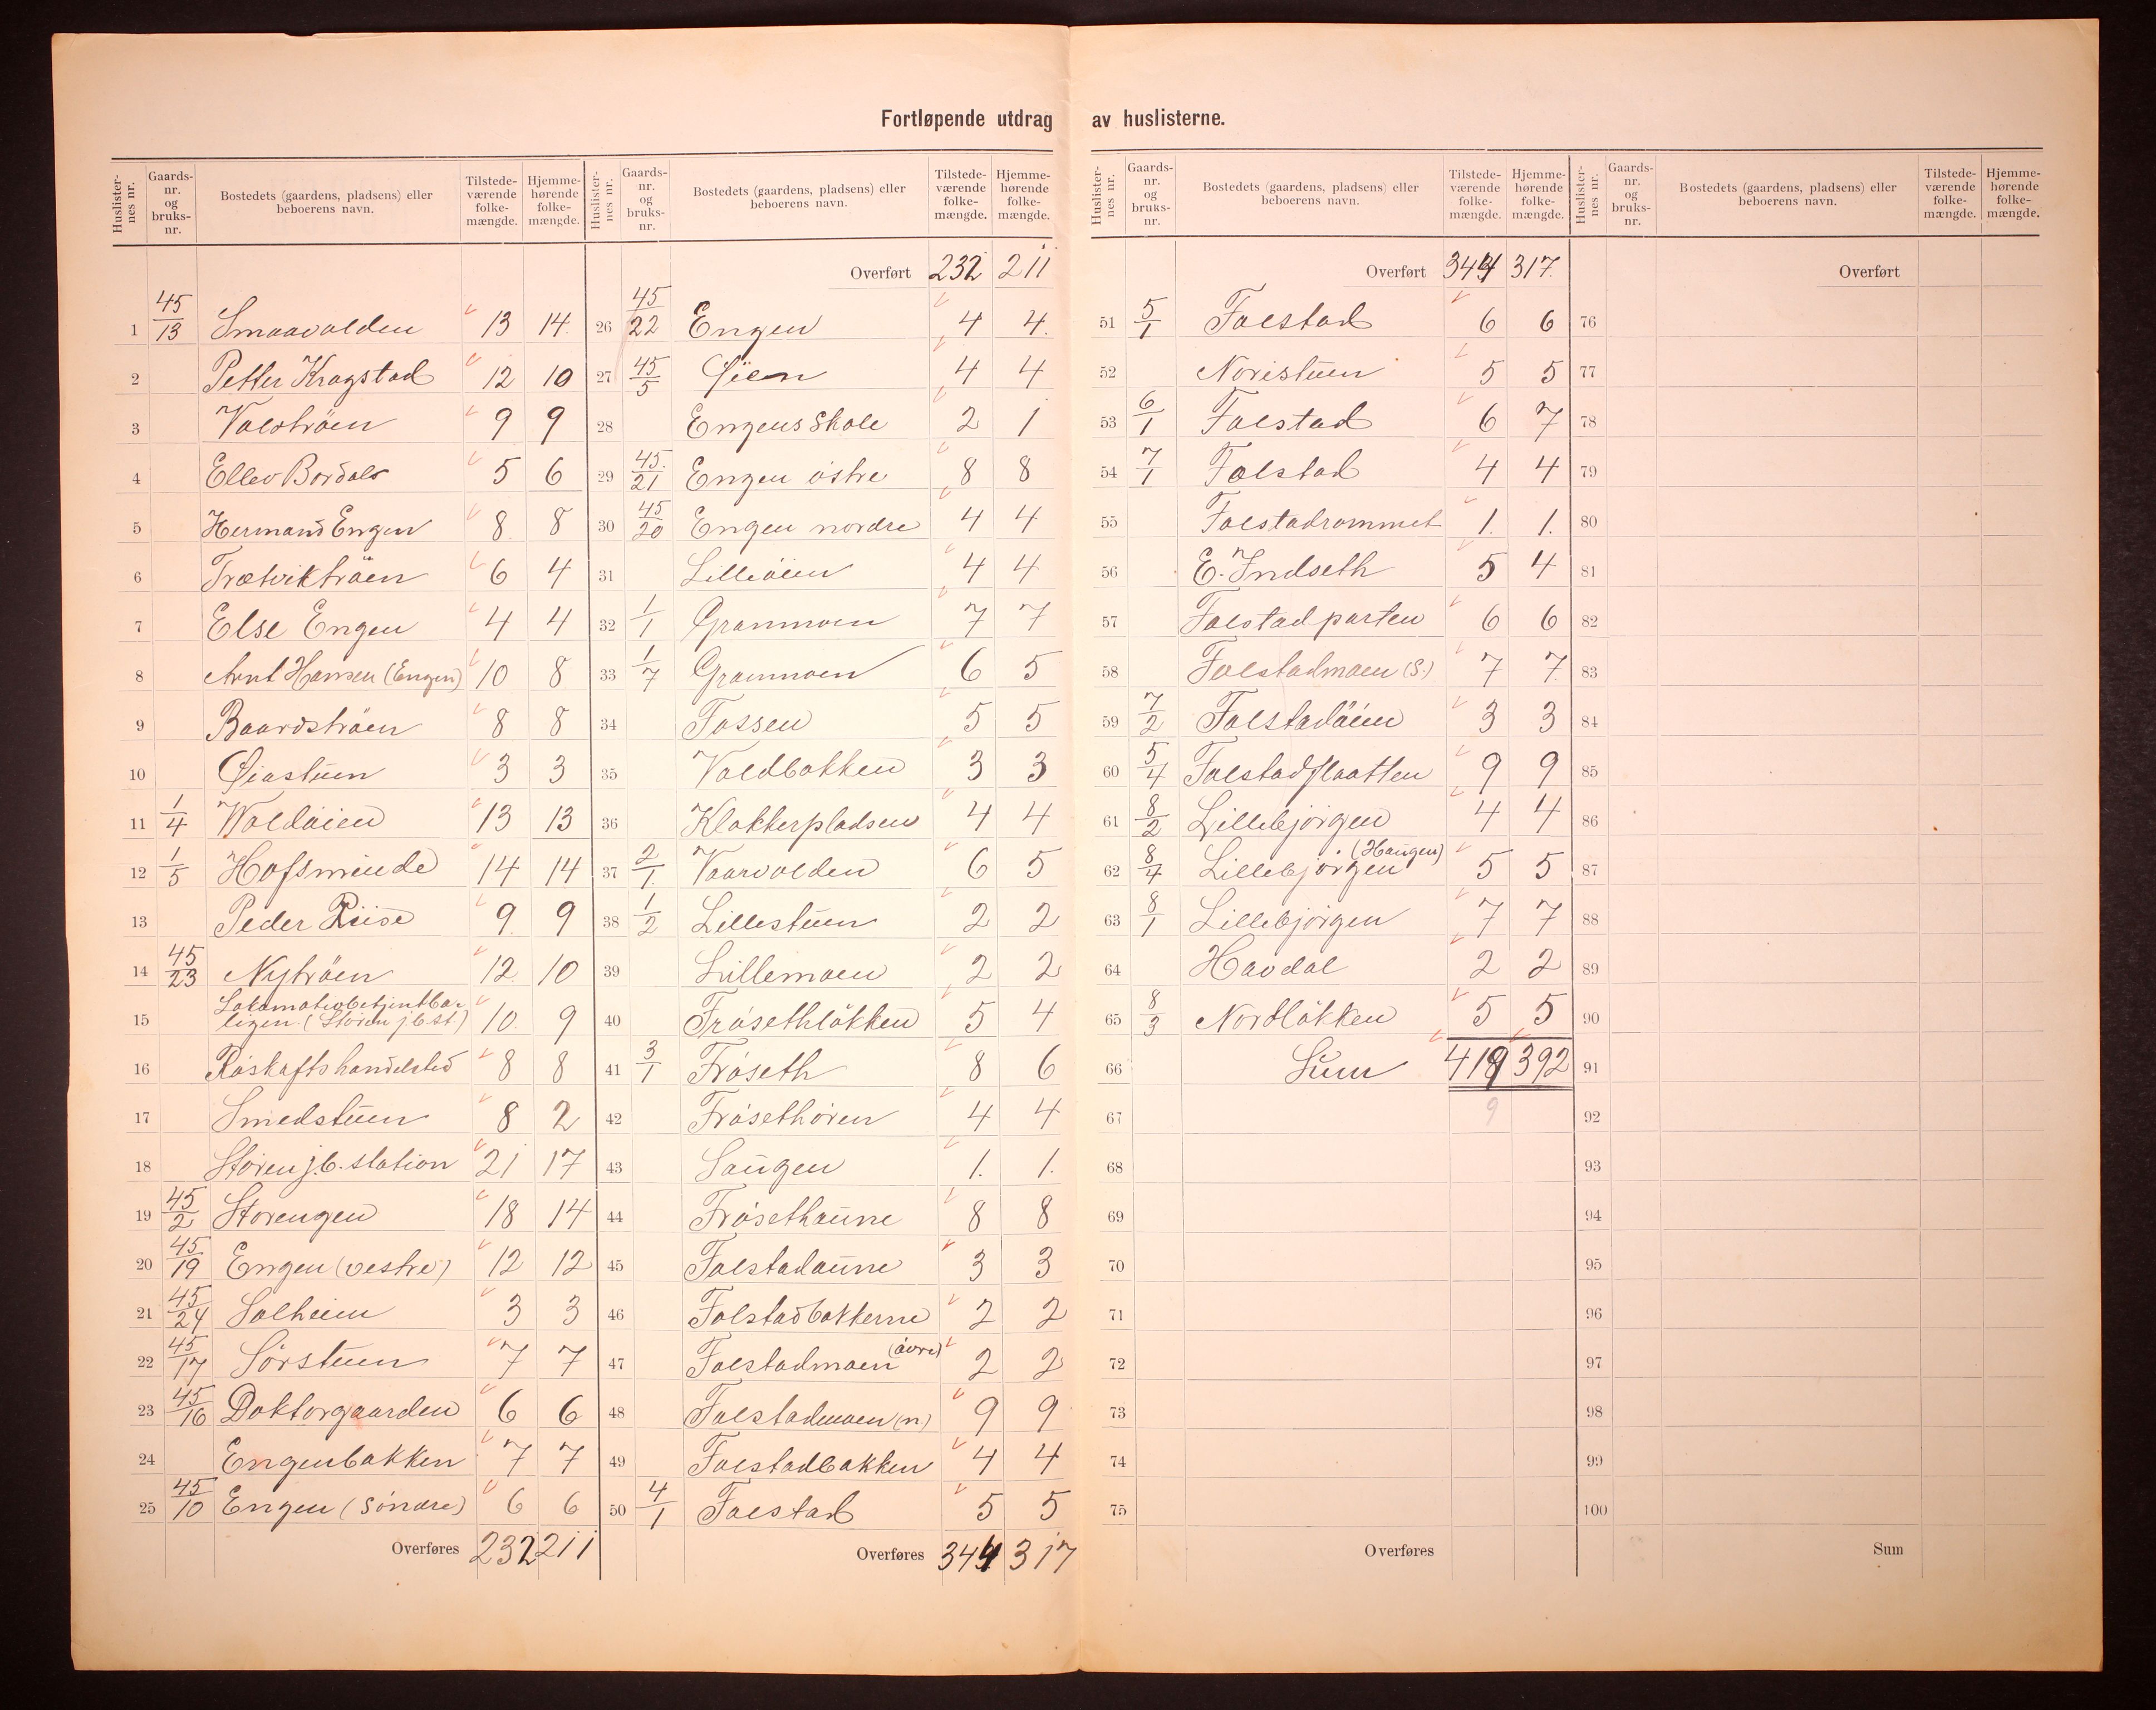 Fortløpende utdrag av huslisterne.
Huslister-nes nr. Gaards-nr. og bruks-nr. Bostedets (gaardens, pladsens) eller beboerens navn. Tilstede-værende folke-mængde. Hjemme-hørende folke-mængde.
1 45/13 Smaavolden 13 14
2 Petter Kragstad 12 10
3 Valstrøen 9 9
4 Ellev Bordals 5 6
5 Hermand Engen 8 8
6 Trætviktrøen 6 4
7 Else Engen 4 4
8 Arnt Hansen (Engen) 10 8
9 Baardstrøen 8 8
10 Øiastuen 3 3
11 1/4 Voldøien 13 13
12 1/5 Hofsminde 14 14
13 Peder Riise 9 9
14 45/23 Nytrøen 12 10
15 Lokomotivbetjentbo-
ligen (Støren jb.st.) 10 9
16 Røskaft handelsted 8 8
17 Smedstuen 8 2
18 Støren j.b. station 21 17
19 45/2 Storengen 18 14
20 45/19 Engen (vestre) 12 12
21 45/24 Solheim 3 3
22 45/17 Sörstuen 7 7
23 45/16 Doktorgaarden 6 6
24 Engenbakken 7 7
25 45/10 Engen (söndre) 6 6
Overføres 232 211
Huslister-nes nr. Gaards-nr. og bruks-nr. Bostedets (gaardens, pladsens) eller beboerens navn. Tilstede-værende folke-mængde. Hjemme-hørende folke-mængde.
Overført 232 211
26 45/22 Engen 4 4
27 45/5 Øien 4 4
28 Engens Skole 2 1
29 45/21 Engen östre 8 8
30 45/20 Engen nordre 4 4
31 Lilleöien 4 4
32 1/1 Granmoen 7 7
33 1/7 Granmoen 6 5
34 Fossen 5 5
35 Voldbakken 3 3
36 Klokkerpladsen 4 4
37 2/1 Vaarvolden 6 5
38 1/2 Lillestuen 2 2
39 Lillemoen 2 2
40 Frösethlökken 5 4
41 3/1 Fröseth 8 6
42 Frösethören 4 4
43 Haugen 1 1
44 Frösethaune 8 8
45 Folstadaune 3 3
46 Folstadbakkerne 2 2
47 Folstadmoen (övre) 2 2
48 Folstadmoen (n.) 9 9
49 Folstadbakken 4 4
50 4/1 Folstad 5 5
Overføres 344 317
Huslister-nes nr. Gaards-nr. og bruks-nr. Bostedets (gaardens, pladsens) eller beboerens navn. Tilstede-værende folke-mængde. Hjemme-hørende folke-mængde.
Overført 344 317
51 5/1 Folstad 6 6
52 Noristuen 5 5
53 6/1 Folstad 6 7
54 7/1 Folstad 4 4
55 Folstadrommet 1 1
56 E. Indseth 5 4
57 Folstadparten 6 6
58 Folstadmoen (S.) 7 7
59 7/2 Folstadöien 3 3
60 5/4 Folstadflaatten 9 9
61 8/2 Lillebjörgen 4 4
62 8/4 Lillebjörgen (Haugen) 5 5
63 8/1 Lillebjörgen 7 7
64 Havdal 2 2
65 8/3 Nordlökken 5 5
66 Sum 419 392
67 9
68
69
70
71
72
73
74
75
Overføres
Huslister-nes nr. Gaards-nr. og bruks-nr. Bostedets (gaardens, pladsens) eller beboerens navn. Tilstede-værende folke-mængde. Hjemme-hørende folke-mængde.
Overført
76
77
78
79
80
81
82
83
84
85
86
87
88
89
90
91
92
93
94
95
96
97
98
99
100
Sum